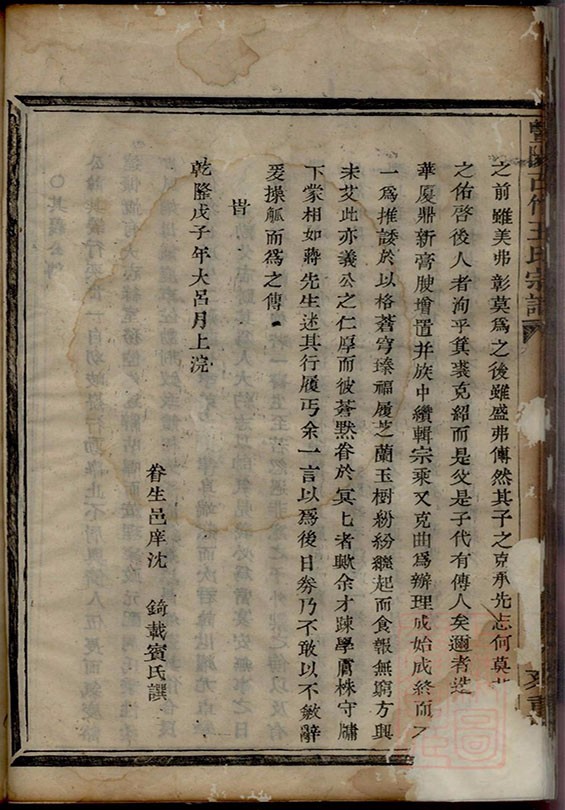 之前雖美弗彰莫為之後雖盛弗傳然其子之克承先志何莫
之佑啓後人者洵乎箕裘克紹而是父是子代有傳人矣邇者造
華廈鼎新膏腴增置并族中纘輯宗乘又克曲為辦理成始成終而不
一為推諉於以格蒼穹臻福履芝蘭玉樹紛紛繼起而食報無窮方興
未艾此亦義公之仁厚而彼蒼默眷於冥匕者歟余才踈學膚株守牖
下蒙相如蔣先生述其行履丐余一言以為後日劵乃不敢以不敏辭
爰操觚而為之傳
旹
乾隆戊子年大呂月上浣
眷生邑庠沈 錡載賓氏譔
王氏宗譜